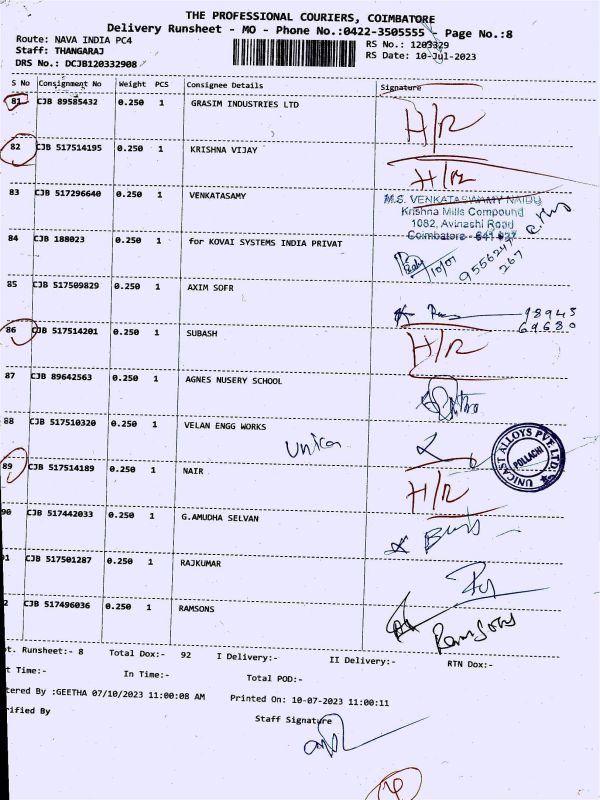 THE PROFESSIONAL COURIERS, COIMBATORE
Delivery Runsheet - MO - Phone No.:0422-3505555 - Page No.:8
Route: NAVA INDIA PC4 RS No.: 1203329
Staff: THANGARAJ RS Date: 10-Jul-2023
DRS No.: DCJB120332908
S No Consignment No Weight PCS Consignee Details Signature
81 CJB 89585432 0.250 1 GRASIM INDUSTRIES LTD H/R
82 CJB 517514195 0.250 1 KRISHNA VIJAY H/R
83 CJB 517296640 0.250 1 VENKATASAMY
M.S. VENKATASWAMY NAIDU
Krishna Mills Compound
1082, Avinashi Road
Coimbatore - 641 037
84 CJB 188023 0.250 1 for KOVAI SYSTEMS INDIA PRIVAT
10/07
267
85 CJB 517509829 0.250 1 AXIM SOFR
98945
69680
86 CJB 517514201 0.250 1 SUBASH H/R
87 CJB 89642563 0.250 1 AGNES NUSERY SCHOOL
88 CJB 517510320 0.250 1 VELAN ENGG WORKS
Unica
UNICAST ALLOYS PVT. LTD.
POLLACHI
89 CJB 517514189 0.250 1 NAIR H/R
90 CJB 517442033 0.250 1 G.AMUDHA SELVAN
91 CJB 517501287 0.250 1 RAJKUMAR
2 CJB 517496036 0.250 1 RAMSONS
Ramsons
ot. Runsheet:- 8 Total Dox:- 92 I Delivery:- II Delivery:- RTN Dox:-
t Time:- In Time:- Total POD:-
tered By :GEETHA 07/10/2023 11:00:08 AM Printed On: 10-07-2023 11:00:11
rified By Staff Signature